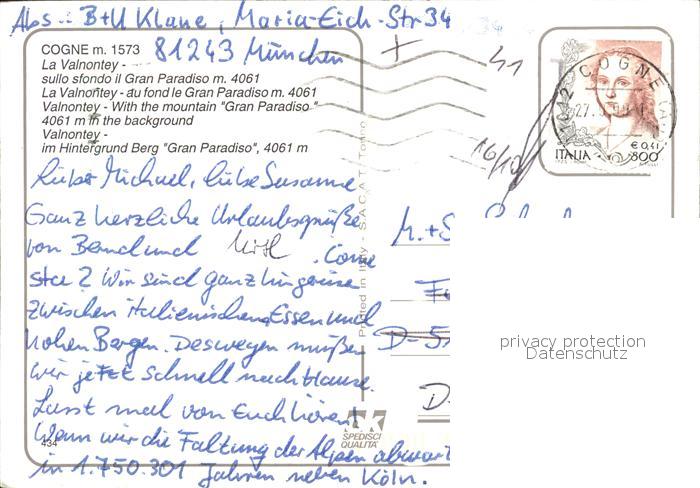 Abs.: B+U Klane, Maria-Eich-Str 34
81243 München
COGNE m. 1573
La Valnontey -
sullo sfondo il Gran Paradiso m. 4061
La Valnontey - au fond le Gran Paradiso m. 4061
Valnontey - With the mountain "Gran Paradiso"
4061 m in the background
Valnontey -
im Hintergrund Berg "Gran Paradiso", 4061 m
Lieber Michael, liebe Susanne
Ganz herzliche Urlaubsgrüße
von Bernd und . Come
sta? Wir sind ganz hingerissen
zwischen italienischem Essen und
hohen Bergen. Deswegen müßen
wir jetzt schnell nach Hause.
Lasst mal von Euch hören!
Wenn wir die Faltung der Alpen abwart
in 1.750.301 Jahren neben Köln.
Printed in Italy - S.A.C.A.T. Torino
SPEDISCI
QUALITA'
434
COGNE (AO)
27.
ITALIA
€ 0,41
800
41
16/10
M.+S
D-5
D-
privacy protection
Datenschutz